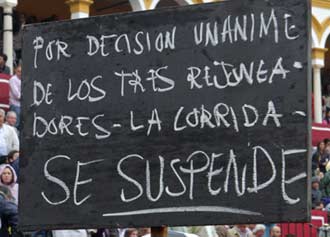 POR DECISION UNANIME
DE LOS TRES REJONEA-
DORES-LA CORRIDA-
SE SUSPENDE